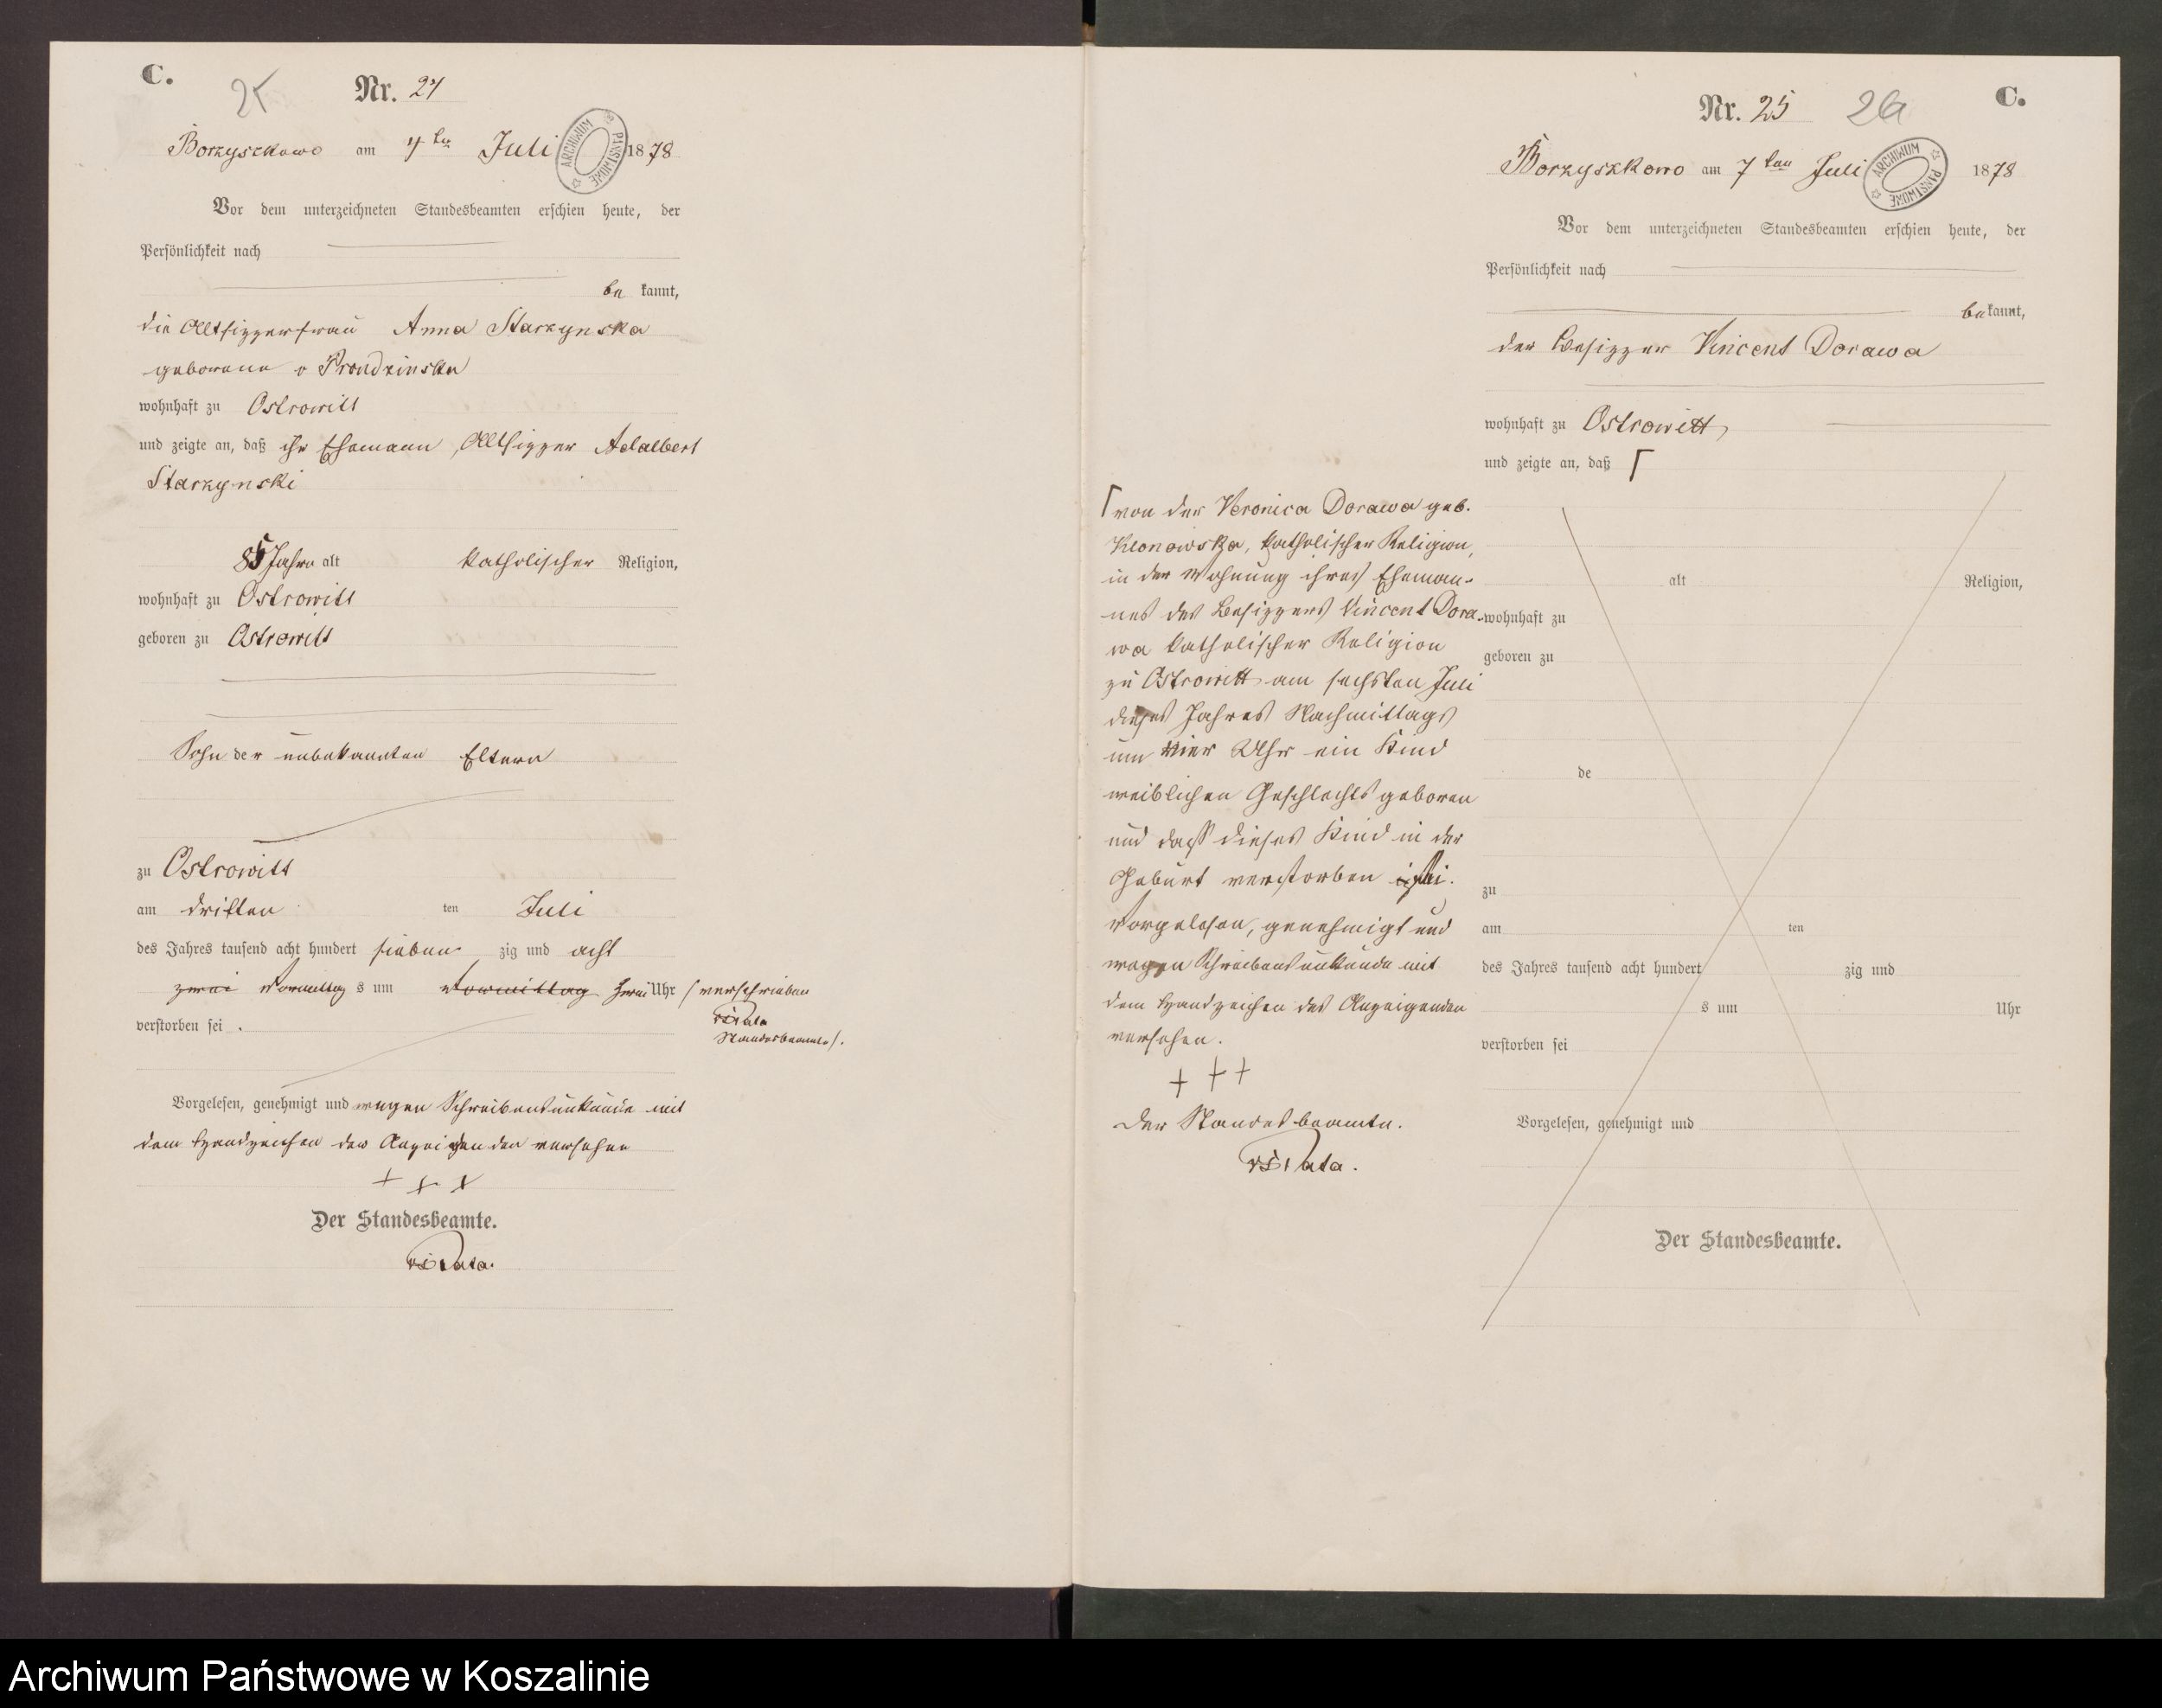 C.
25
Nr. 24
Borzyszkowo am 4ten Juli 1878
ARCHIWUM PAŃSTWOWE
Vor dem unterzeichneten Standesbeamten erschien heute, der
Persönlichkeit nach
be kannt,
die Altsitzerfrau Anna Starzynska
geborene v Prondzinska
wohnhaft zu Ostrowitt
und zeigte an, daß ihr Ehemann, Altsitzer Adalbert
Starzynski
85 Jahre alt katholischer Religion,
wohnhaft zu Ostrowitt
geboren zu Ostrowitt
Sohn der unbekannten Eltern
zu Ostrowitt
am dritten ten Juli
des Jahres tausend acht hundert sieben zig und acht
zwei Vormittag s um Vormittag zwei Uhr (verschrieben
Standesbeamte).
verstorben sei .
Vorgelesen, genehmigt und wegen Schreibensunkunde mit
dem Handzeichen der Anzeigenden versehen
+ + +
Der Standesbeamte.
C.
Nr. 25 26
Borzyszkowo am 7ten Juli 1878
ARCHIWUM PAŃSTWOWE
Vor dem unterzeichneten Standesbeamten erschien heute, der
Persönlichkeit nach
be kannt,
der Besitzer Vincent Dorawa
wohnhaft zu Ostrowitt,
und zeigte an, daß ⌈
⌈ von der Veronica Dorawa geb.
Klonowska, katholischer Religion,
in der Wohnung ihres Eheman-
nes des Besitzers Vincent Dora-
wa katholischer Religion
zu Ostrowitt am sechsten Juli
dieses Jahres Nachmittags
um vier Uhr ein Kind
weiblichen Geschlechts geboren
und daß dieses Kind in der
Geburt verstorben sei.
Vorgelesen, genehmigt und
wegen Schreibensunkunde mit
dem Handzeichen des Anzeigenden
versehen.
+ + +
Der Standesbeamte.
alt Religion,
wohnhaft zu
geboren zu
de
zu
am ten
des Jahres tausend acht hundert zig und
s um Uhr
verstorben sei
Vorgelesen, genehmigt und
Der Standesbeamte.
Archiwum Państwowe w Koszalinie